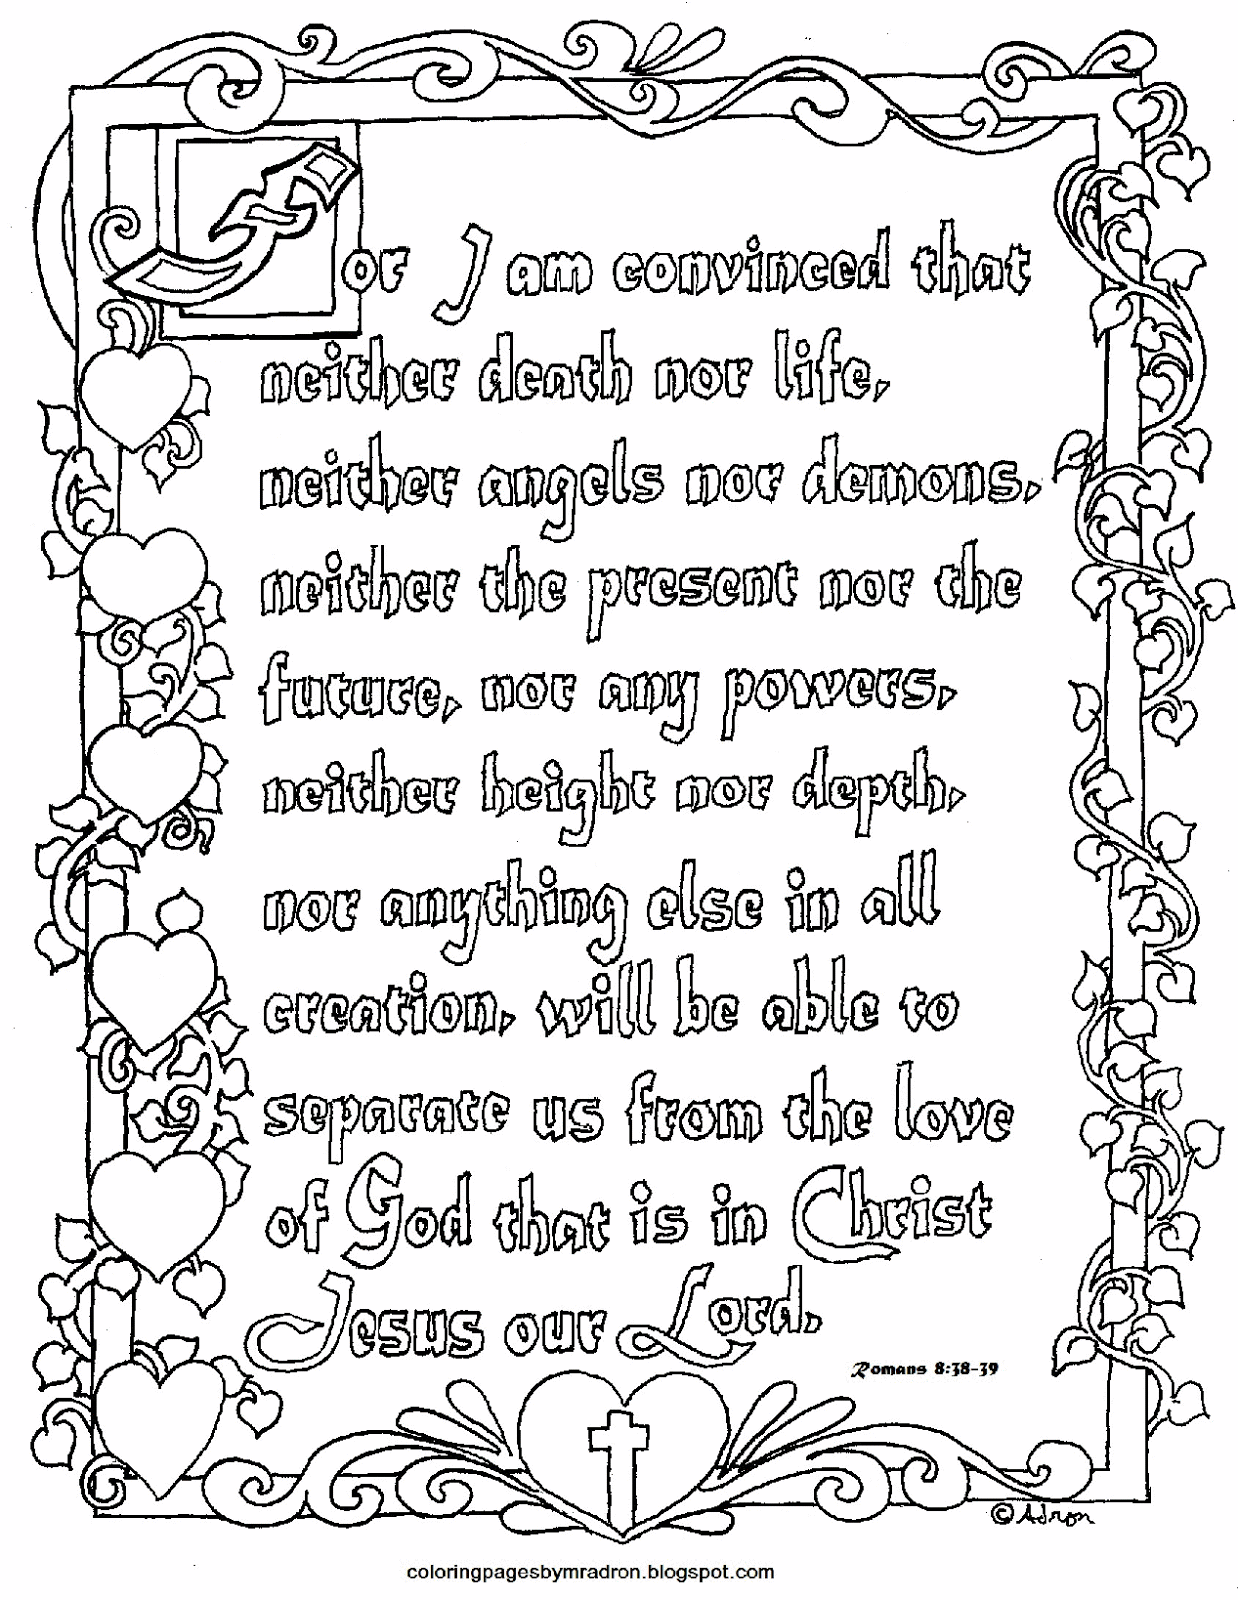 For I am convinced that
neither death nor life,
neither angels nor demons,
neither the present nor the
future, nor any powers,
neither height nor depth,
nor anything else in all
creation, will be able to
separate us from the love
of God that is in Christ
Jesus our Lord.
Romans 8:38-39
©Adron
coloringpagesbymradron.blogspot.com